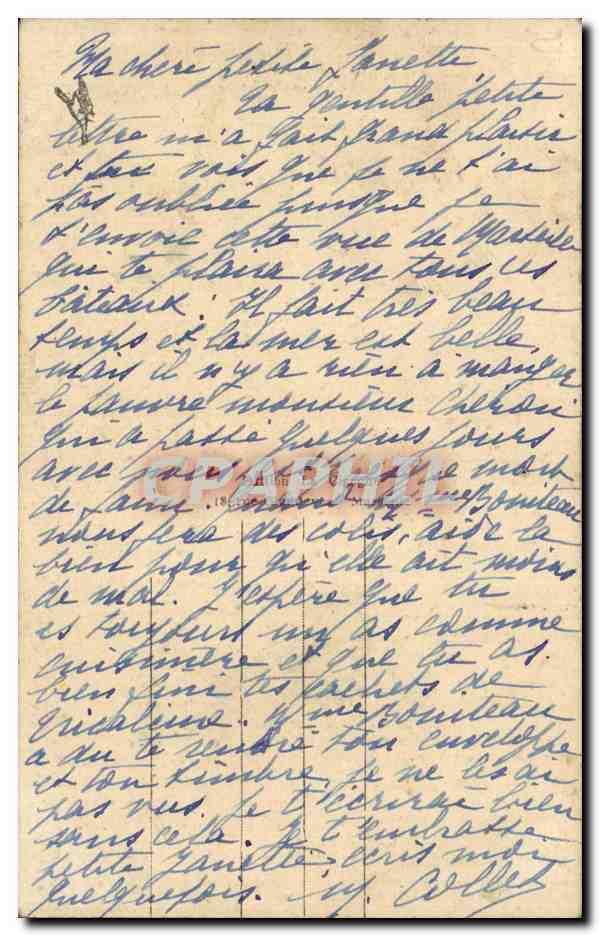 Ma cheré petite Janette
Ta gentille petite
lettre m'a fait grand plaisir
et tu vois que je ne t'ai
pas oubliée puisque je
t'envoie cette vue de Marseille
qui te plaira avec tous ces
bâteaux. Il fait très beau
temps et la mer est belle,
mais il n'y a rien à manger
le pauvre monsieur
qui a passé quelques jours
avec nous est mort
de faim. Mme Boniteau
nous fera des colis, aide la
bien pour qu'elle ait moins
de mal. J'espère que tu
es toujours un as comme
cuisinière et que tu as
bien fini tes cachets de
tricalcine. Mme Boniteau
a du te rendre ton enveloppe
et ton timbre, je ne les ai
pas vus. Je t'écrirai bien
sans cela. Je t'embrasse
petite Janette, écris moi
quelquefois. M. Collet
CPAPHIL